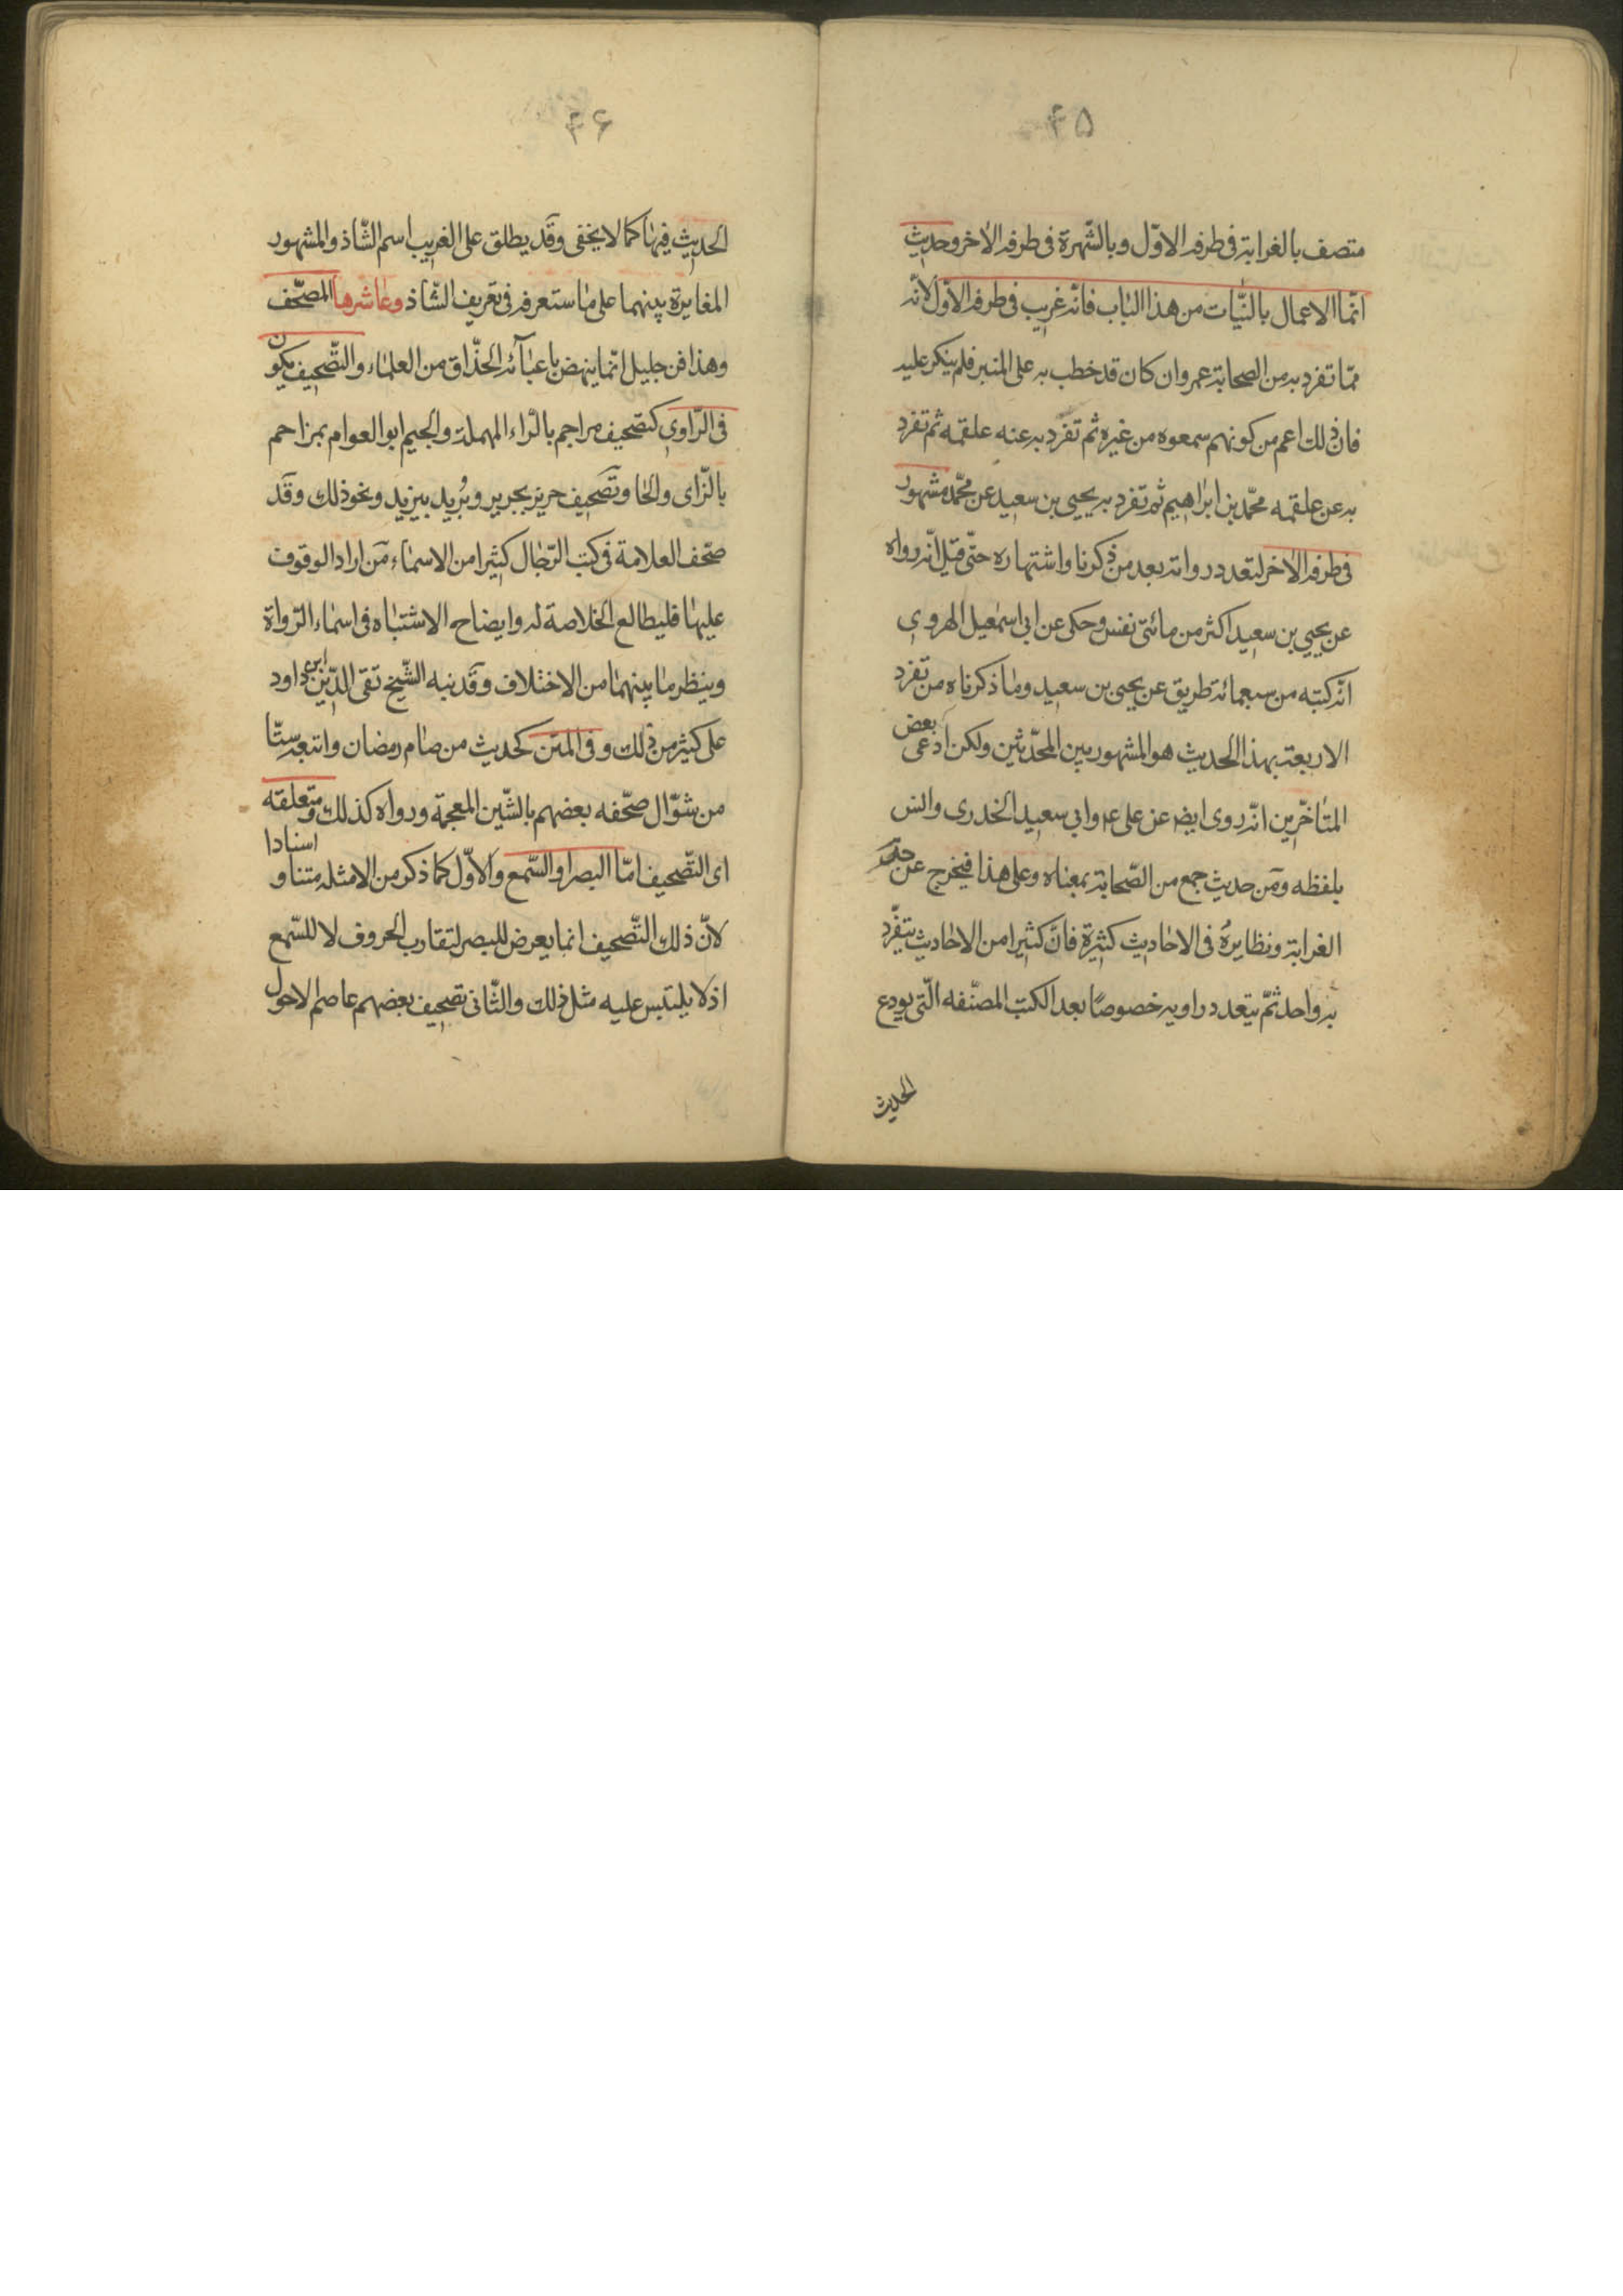 ۴۵
متصف بالغرابة فى طرفه الاوّل وبالشّهرة فى طرفه الاخر وحديث
انّما الاعمال بالنّيّات من هذا الباب فانّه غريب فى طرفه الاوّل لانّه
ممّا تفرد به من الصحابة عمر وان كان قد خطب به على المنبر فلم ينكر عليه
فان ذلك اعم من كونهم سمعوه من غيره ثم تفرّد به عنه علقمه ثم تفرد
به عن علقمه محمّد بن ابراهيم ثم تفرد به يحيى بن سعيد عن محمّد مشهور
فى طرفه الاخر لتعدد رواته بعد من ذكرنا واشتهاره حتّى قيل انّه رواه
عن يحيى بن سعيد اكثر من مائتى نفس وحكى عن ابى اسمعيل الهروى
انّه كتبه من سبعمائة طريق عن يحيى بن سعيد وما ذكرناه من تفرد
الاربعة بهذا الحديث هو المشهور بين المحدّثين ولكن ادعى بعض
المتاخّرين انّه روى ايض عن على ع وابى سعيد الخدرى وانس
بلفظه ومن حديث جمع من الصّحابة بمعناه وعلى هذا فيخرج عن حد
الغرابة ونظايره فى الاحاديث كثيرة فانّ كثيرا من الاحاديث يتفرّد
به واحد ثمّ يتعدد راويه خصوصًا بعد الكتب المصنّفه الّتى يودع
الحديث
۴۶
الحديث فيها كما لا يخفى وقد يطلق على الغريب اسم الشّاذ والمشهور
المغايرة بينهما على ما ستعرفه فى تعريف الشّاذ وعاشرها المصحّف
وهذا فن جليل انّما ينهض باعبآئه الحذّاق من العلماء والتّصحيف يكون
فى الرّاوى كتصحيف مراجم بالرّاء المهملة والجيم ابو العوام بمزاحم
بالزّاى والحا وتصحيف حريز بجرير وبُريد بيزيد ونحو ذلك وقد
صحّف العلامة فى كتب الرّجال كثيرا من الاسماء من اراد الوقوف
عليها فليطالع الخلاصة له وايضاح الاشتباه فى اسماء الرّواة
وينظر ما بينهما من الاختلاف وقد نبه الشّيخ تقى الدّين ابن داود
على كثير من ذلك وفى المتن كحديث من صام رمضان واتبعه ستّا
من شوّال صحّفه بعضهم بالشّين المعجمة ورواه كذلك ومتعلقه
اى التّصحيف امّا البصر او السّمع والاوّل كما ذكر من الامثله متنا و اسنادا
لانّ ذلك التّصحيف انما يعرض للبصر لتقارب الحروف لا للسّمع
اذ لا يلتبس عليه مثل ذلك والثّانى تصحيف بعضهم عاصم الاحول